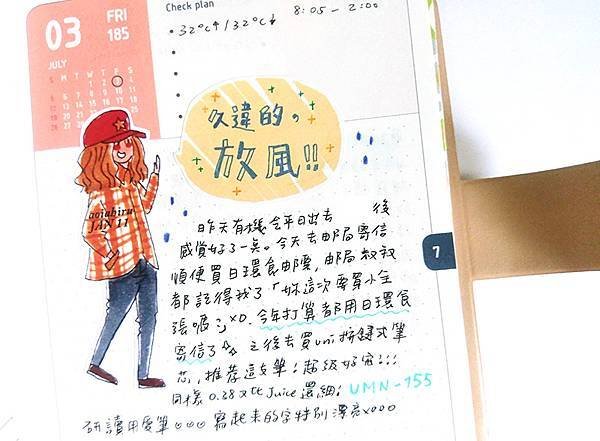 03
FRI
185
JULY
S M T W T F S
1 2 3 4
5 6 7 8 9 10 11
12 13 14 15 16 17 18
19 20 21 22 23 24 25
26 27 28 29 30 31
Check plan
• 32°C↑/32°C↓ 8:05-2:00
久違的。
放風!!
aoiahiru
JAN 11
昨天有機會平日出去 後
感覺好了一點。今天去郵局寄信
順便買日環食郵票,郵局叔叔
都認得我了「妳這次要買小全
張嗎?」xD. 今年打算都用日環食
寄信了☆ 之後去買uni按鍵式筆
芯,推荐這支筆!超級好寫!!!
同樣0.38又比Juice還細! UMN-155
研讀用愛筆 寫起來的字特別漂亮xooo
7